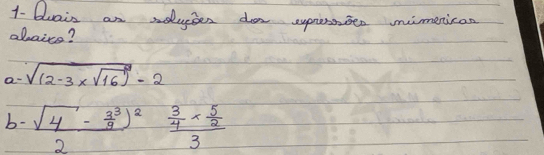 1- Quais as soluções dos expressões númericas
abaixo?
a- √(2-3 x √16)² - 2
b- (√4 - 3³/9)² / 2 (3/4 x 5/2) / 3